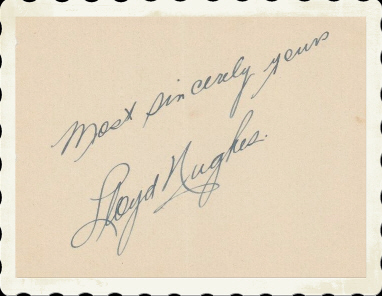 Most sincerely yours
Lloyd Hughes.